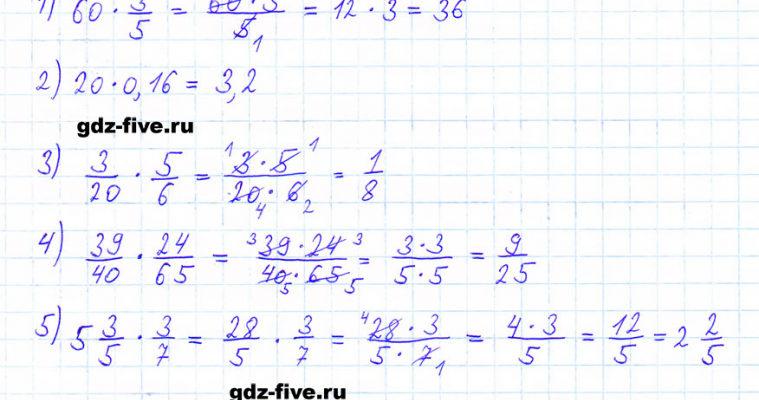 1) 60 · 3/5 = 60·3/5 1 = 12 · 3 = 36
2) 20 · 0,16 = 3,2
gdz-five.ru
3) 3/20 · 5/6 = 1 3 · 5 1/20 4 · 6 2 = 1/8
4) 39/40 · 24/65 = 3 39 · 24 3/40 5 · 65 5 = 3·3/5·5 = 9/25
5) 5 3/5 · 3/7 = 28/5 · 3/7 = 4 28 · 3/5 · 7 1 = 4·3/5 = 12/5 = 2 2/5
gdz-five.ru